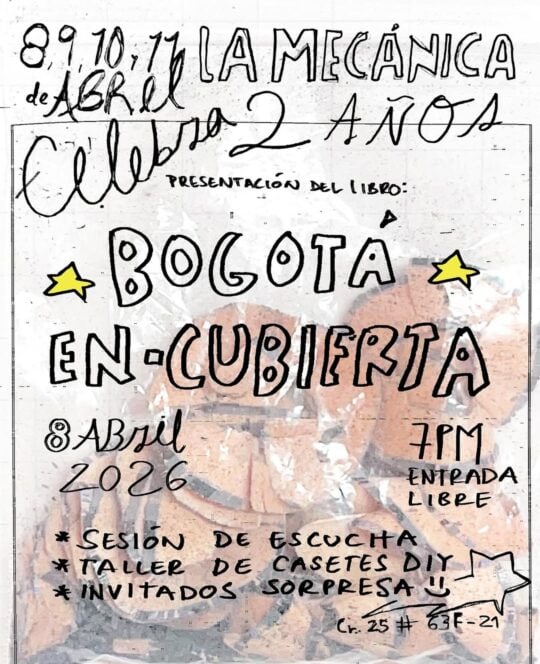 8, 9, 10, 11 LA MECÁNICA
de ABRIL
Celebra 2 AÑOS
PRESENTACIÓN DEL LIBRO:
BOGOTÁ
EN-CUBIERTA
8 ABRIL 7PM
2026 ENTRADA
LIBRE
* SESIÓN DE ESCUCHA
* TALLER DE CASETES DIY
* INVITADOS SORPRESA
Cr. 25 # 63F-21